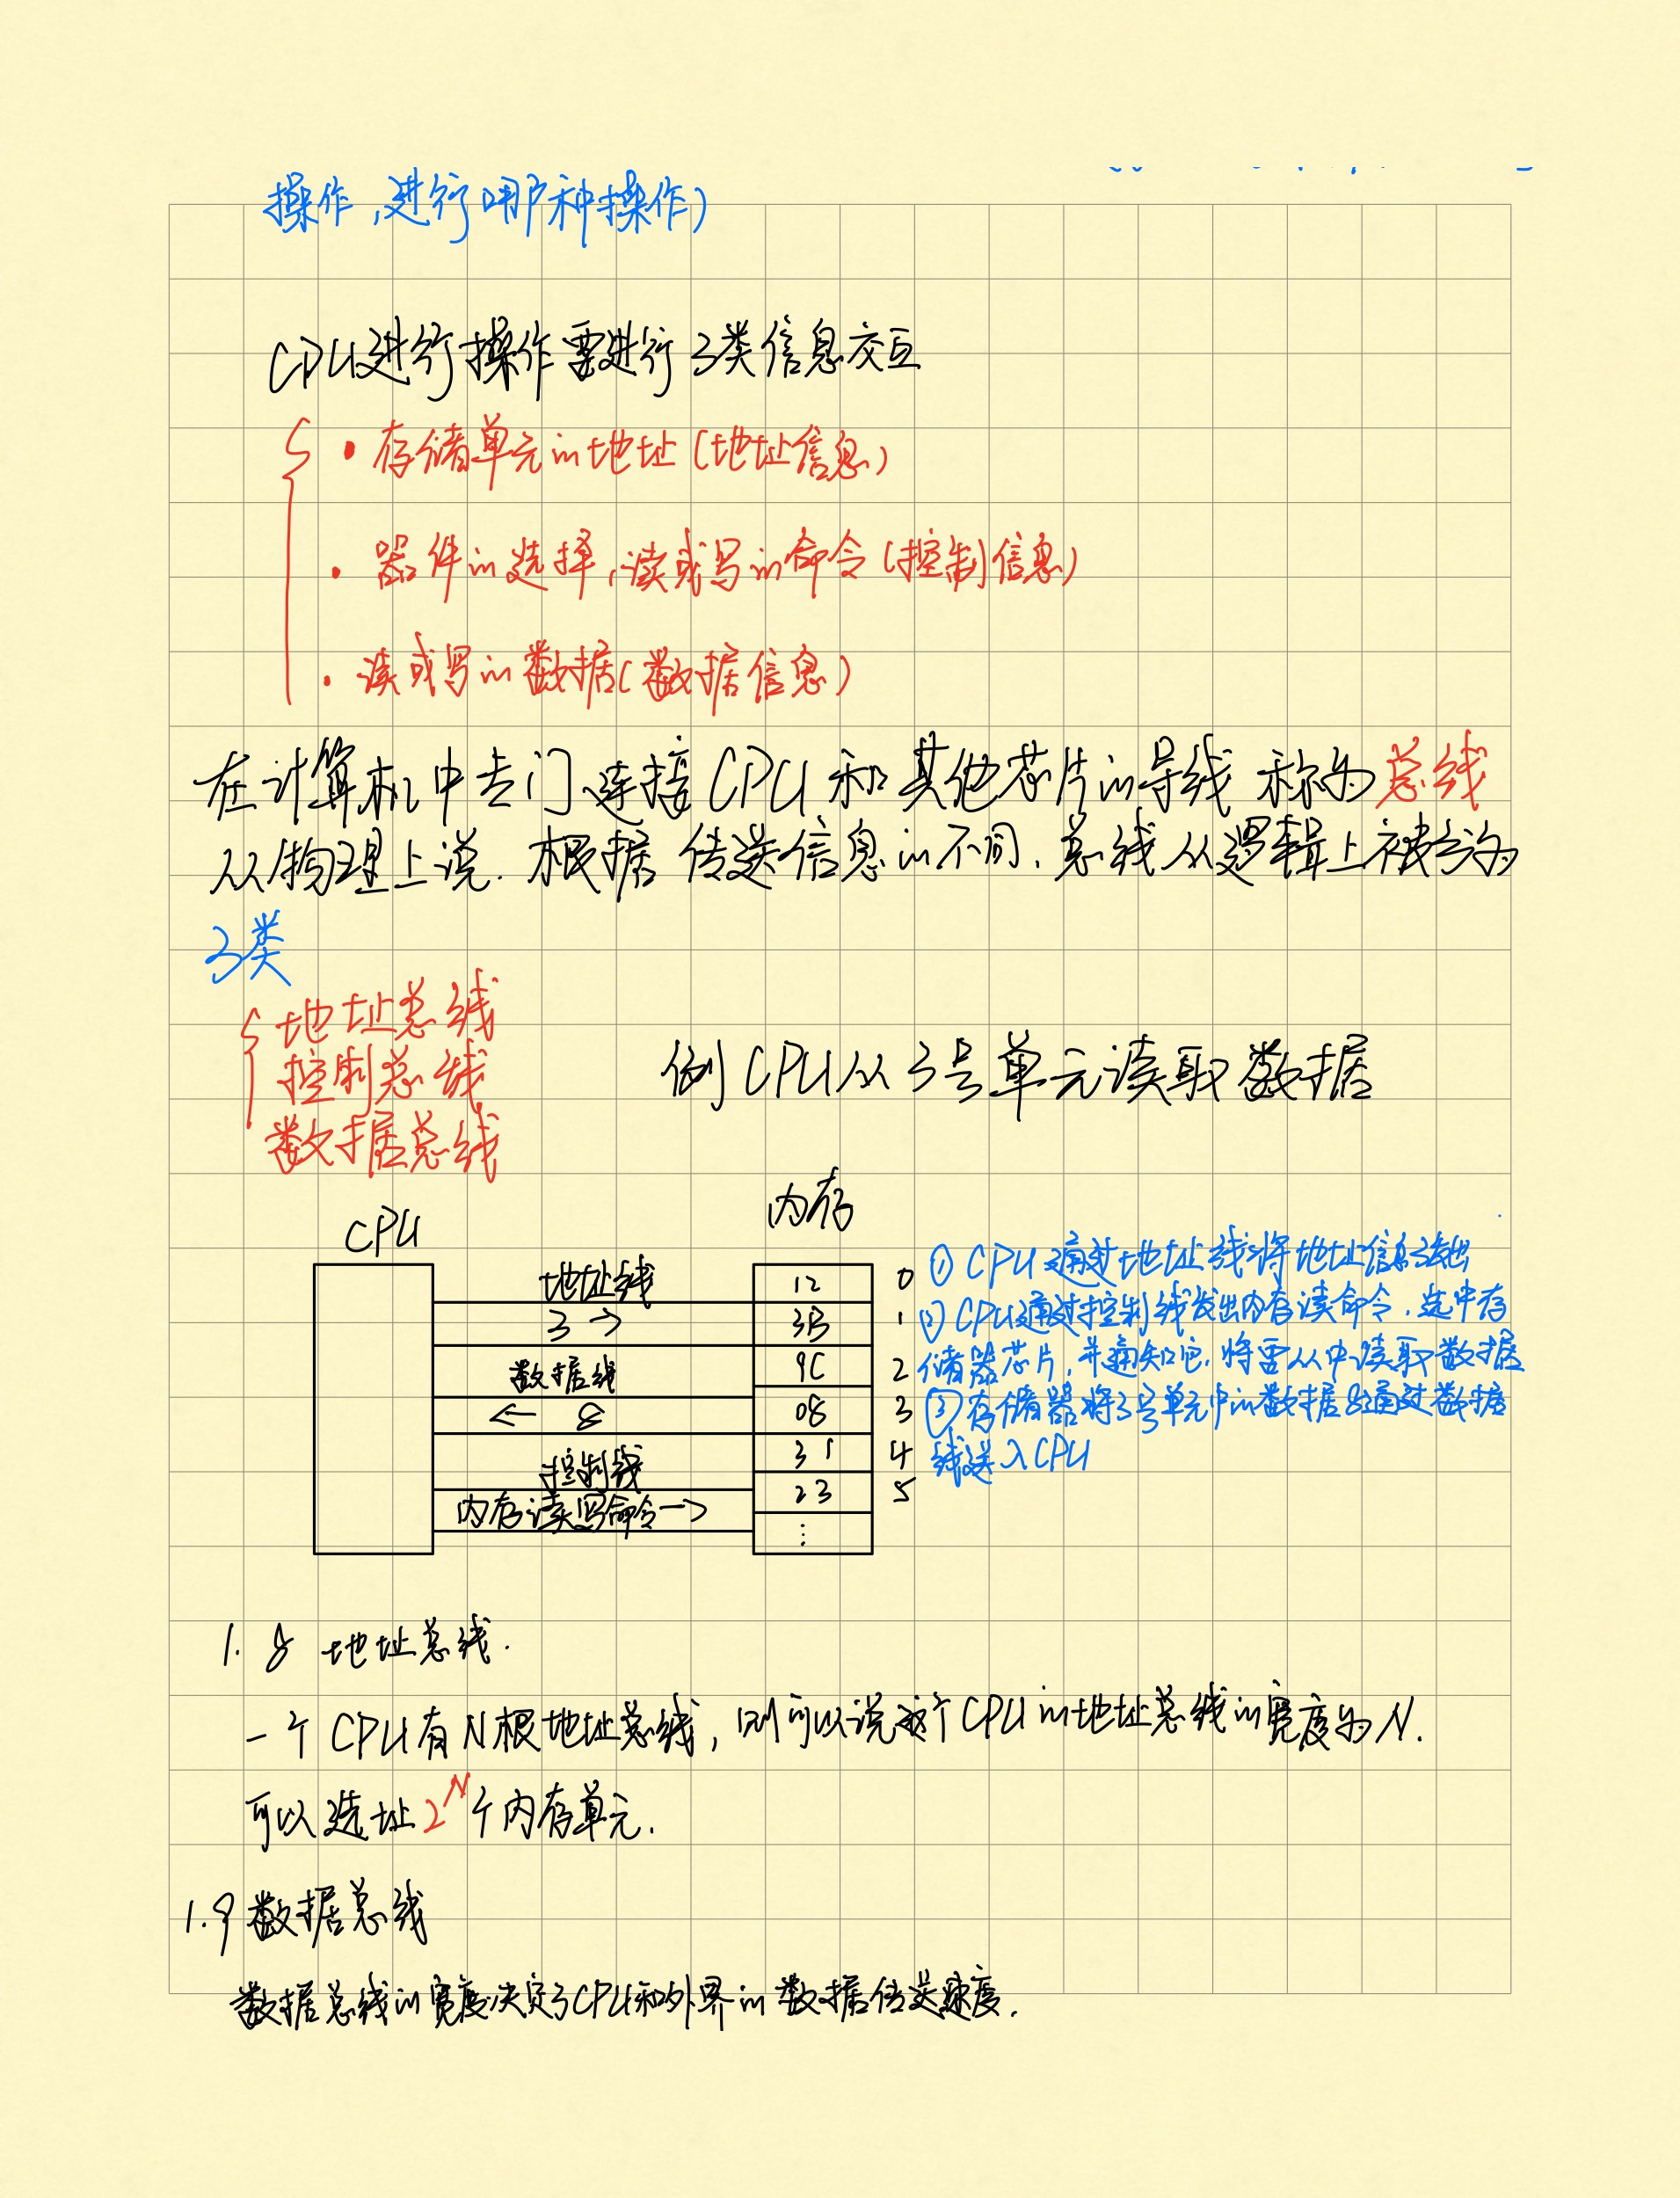 操作,进行哪种操作)
CPU进行操作需进行3类信息交互
·存储单元的地址(地址信息)
·器件的选择,读或写的命令(控制信息)
·读或写的数据(数据信息)
在计算机中专门连接CPU和其他芯片的导线 称为总线
从物理上说.根据传送信息的不同,总线从逻辑上被分为
3类
地址总线
控制总线
数据总线
例CPU从3号单元读取数据
CPU
内存
地址线
3→
数据线
← 8
控制线
内存读写命令→
12 0
3B 1
9C 2
08 3
31 4
23 5
⋮
①CPU通过地址线将地址信息3发出
②CPU通过控制线发出内存读命令.选中存
储器芯片,并通知它,将要从中读取数据
③存储器将3号单元中的数据8通过数据
线送入CPU
1.8 地址总线.
一个CPU有N根地址总线,则可以说这个CPU的地址总线的宽度为N.
可以选址2^N个内存单元.
1.9数据总线
数据总线的宽度决定了CPU和外界的数据传送速度.